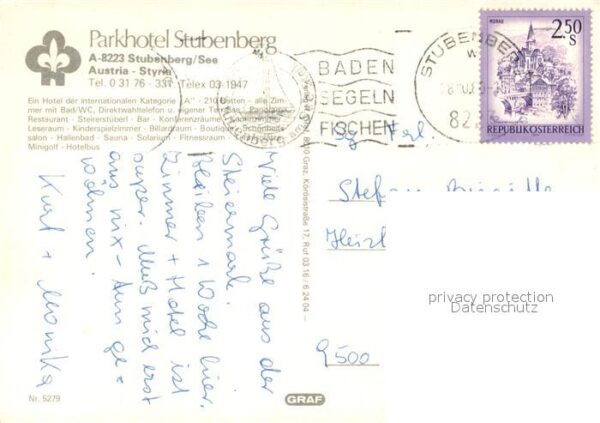 Parkhotel Stubenberg
A-8223 Stubenberg/See
Austria - Styria
Tel. 0 31 76 - 337 Telex 03-1947
Ein Hotel der internationalen Kategorie „A" - 210 Betten - alle Zim-
mer mit Bad/WC, Direktwahltelefon u. eigener Terrasse - Panorama-
Restaurant - Steirerstüberl - Bar - Konferenzräume
Leseraum - Kinderspielzimmer - Billardraum - Boutique - Schönheits-
salon - Hallenbad - Sauna - Solarium - Fitnessraum
Minigolf - Hotelbus
Viele Grüße aus der
Steiermark.
Bleiben 1 Woche hier.
Zimmer + Hotel ist
super. Muß mich erst
ans nix-tun ge=
wöhnen.
Kurt + Monika
Nr. 5279
GRAF
Graz, Körösistraße 17, Ruf 03 16 / 6 24 04
BADEN
SEGELN
FISCHEN
STUBENBERG
82
MURAU
2.50
S
REPUBLIK ÖSTERREICH
Stefan
9500
privacy protection
Datenschutz